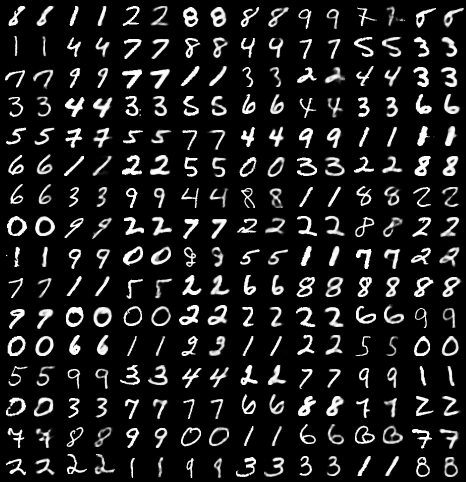 8 8 1 1 2 2 8 8 8 8 9 9 7 7 5 5
1 1 4 4 7 7 8 8 4 4 7 7 5 5 3 3
7 7 9 9 7 7 1 1 3 3 2 2 4 4 3 3
3 3 4 4 3 3 5 5 6 6 4 4 3 3 6 6
5 5 7 7 5 5 7 7 4 4 9 9 1 1 1 1
6 6 1 1 2 2 5 5 0 0 3 3 2 2 8 8
6 6 3 3 9 9 4 4 8 8 1 1 8 8 2 2
0 0 9 9 2 2 7 7 2 2 2 2 8 8 2 2
1 1 9 9 0 0 3 5 5 1 1 7 7 2 2
7 7 1 1 5 5 2 2 6 6 8 8 8 8 8 8
9 9 0 0 0 0 2 2 2 2 2 2 6 6 9 9
0 0 6 6 1 1 2 2 1 1 2 2 5 5 0 0
5 5 9 9 3 3 4 4 2 2 7 7 9 9 1 1
0 0 3 3 7 7 7 7 6 6 8 8 7 2 2
7 7 8 8 9 9 0 0 1 1 6 6 7 7
2 2 2 2 1 1 9 9 3 3 3 3 1 1 8 8